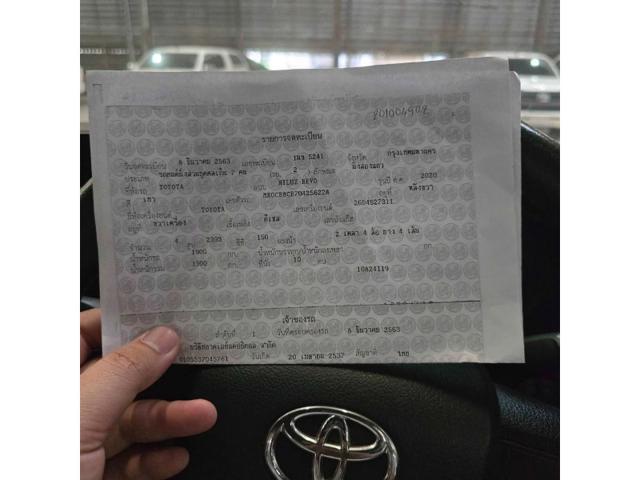 201004902
รายการจดทะเบียน
วันจดทะเบียน 8 ธันวาคม 2563 เลขทะเบียน 5241 จังหวัด กรุงเทพมหานคร
ประเภท รถยนต์นั่งส่วนบุคคลเกิน 7 คน (รย. 2 ) ลักษณะ นั่งสองแถว
ยี่ห้อรถ TOYOTA แบบ HILUX REVO รุ่นปี ค.ศ. 2020
สี เทา เลขตัวรถ อยู่ที่
ยี่ห้อเครื่องยนต์ TOYOTA เลขเครื่องยนต์ 2GD4827311
อยู่ที่ ขวาเครื่อง เชื้อเพลิง ดีเซล เลขถังแก๊ส
จำนวน 4 สูบ 2393 ซีซี 150 แรงม้า 2 เพลา 4 ล้อ ยาง 4 เส้น
น้ำหนักรถ 1900 กก. น้ำหนักบรรทุก/น้ำหนักลงเพลา กก.
น้ำหนักรวม 1900 กก. ที่นั่ง 10 คน 10A24119
เจ้าของรถ
ลำดับที่ 1 วันที่ครอบครองรถ 8 ธันวาคม 2563
จำกัด
0105537045761 วันเกิด 20 เมษายน 2537 สัญชาติ ไทย